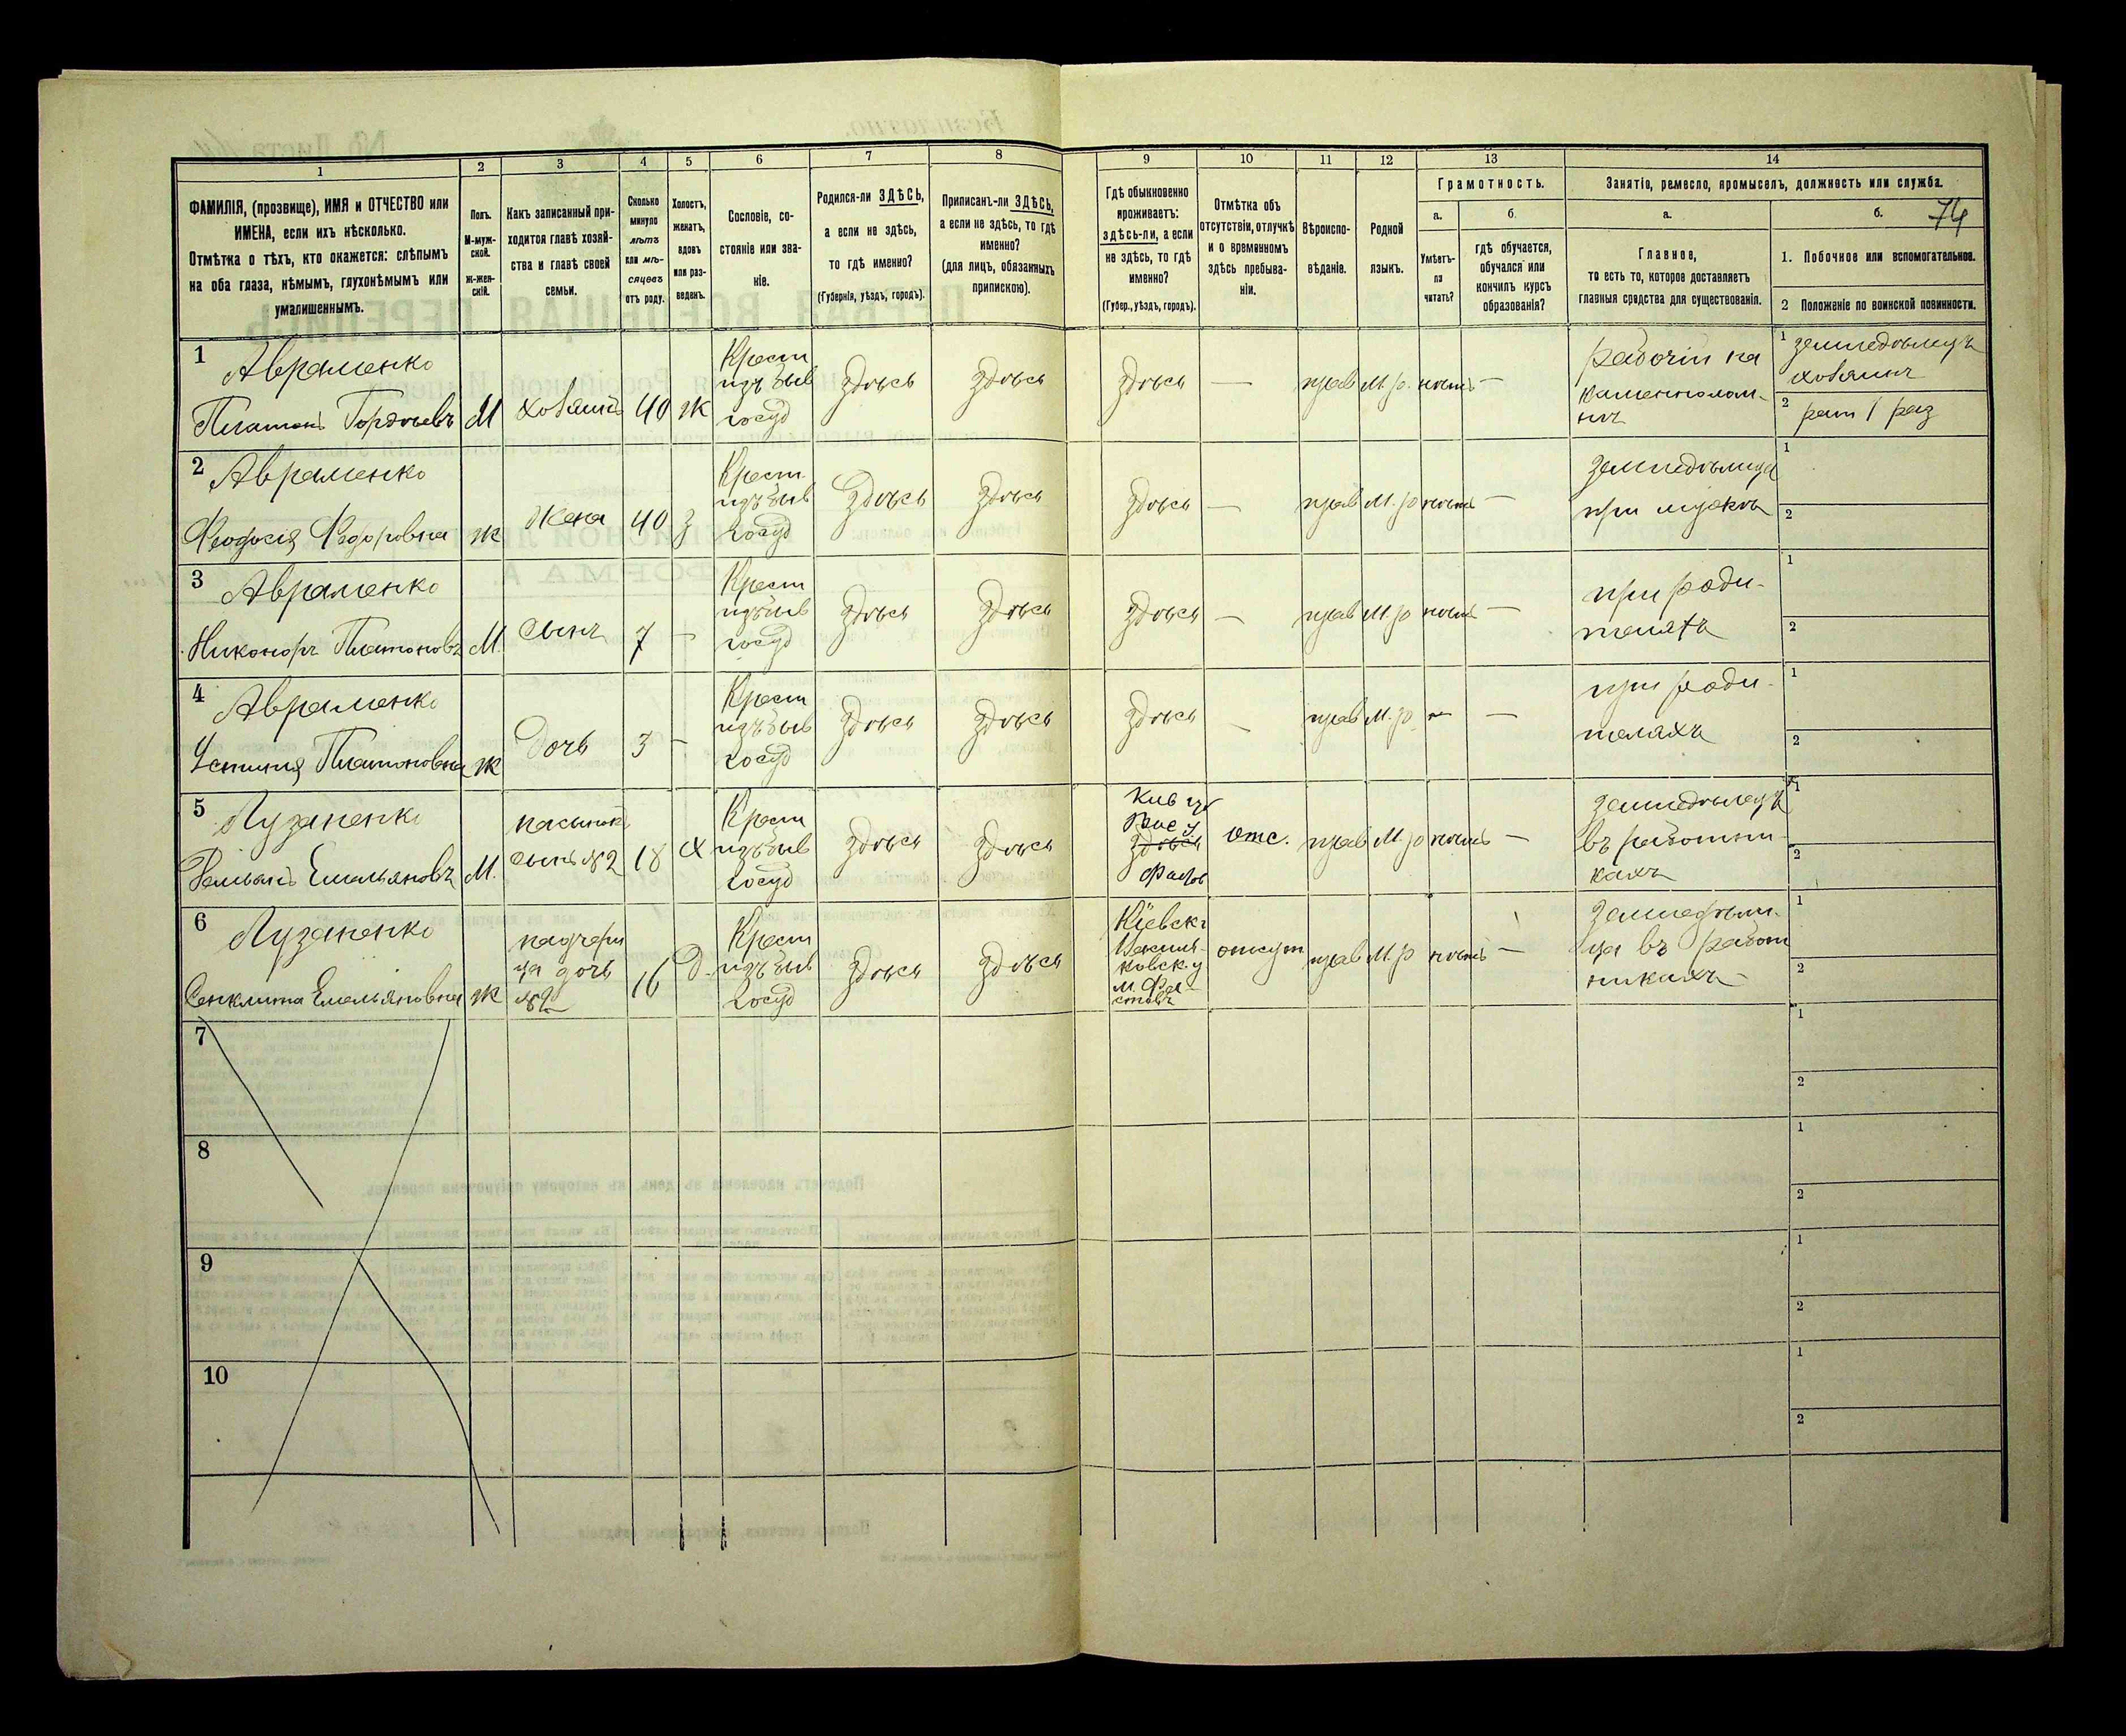 1 2 3 4 5 6 7 8 9 10 11 12 13 14
ФАМИЛІЯ, (прозвище), ИМЯ и ОТЧЕСТВО или
ИМЕНА, если ихъ нѣсколько.
Отмѣтка о тѣхъ, кто окажется: слѣпымъ
на оба глаза, нѣмымъ, глухонѣмымъ или
умалишеннымъ.
Полъ.
М-муж-
ской.
ж-жен-
скій.
Какъ записанный при-
ходится главѣ хозяй-
ства и главѣ своей
семьи.
Сколько
минуло
лѣтъ
или мѣ-
сяцевъ
отъ роду.
Холостъ,
женатъ,
вдовъ
или раз-
веденъ.
Сословіе, со-
стояніе или зва-
ніе.
Родился-ли ЗДѢСЬ,
а если не здѣсь,
то гдѣ именно?
(Губернія, уѣздъ, городъ).
Приписанъ-ли ЗДѢСЬ,
а если не здѣсь, то гдѣ
именно?
(для лицъ, обязанныхъ
припискою).
Гдѣ обыкновенно
проживаетъ:
здѣсь-ли, а если
не здѣсь, то гдѣ
именно?
(Губер., уѣздъ, городъ).
Отмѣтка объ
отсутствіи, отлучкѣ
и о временномъ
здѣсь пребыва-
ніи.
Вѣроиспо-
вѣданіе.
Родной
языкъ.
Грамотность.
а. б.
Умѣетъ-
ли
читать?
гдѣ обучается,
обучался или
кончилъ курсъ
образованія?
Занятіе, ремесло, промыселъ, должность или служба.
а. б. 74
Главное,
то есть то, которое доставляетъ
главныя средства для существованія.
1. Побочное или вспомогательное.
2 Положеніе по воинской повинности.
1 Авраменко
Платонъ Гордѣевъ
М хозяинъ 40 ж
Крест
изъ быв
госуд
здѣсь здѣсь здѣсь — прав М.р. нѣтъ —
рабочій на
каменнолом-
нѣ
1 земледѣлецъ
хозяинъ
2 рат 1 раз
2 Авраменко
Феодосія Федоровна
ж Жена 40 з
Крест.
изъ быв
госуд
здѣсь здѣсь здѣсь — прав М.р нѣтъ —
земледѣлица
при мужѣ
1
2
3 Авраменко
Никоноръ Платоновъ
М. Сынъ 7 —
Крест
изъ быв
госуд
здѣсь здѣсь здѣсь — прав М.р нѣтъ —
при роди-
теляхъ
1
2
4 Авраменко
Устинія Платоновна
ж Дочь 3 —
Крест
изъ быв
госуд
здѣсь здѣсь здѣсь — прав М.р — —
при роди-
теляхъ
1
2
5 Лузаненко
Емельяновъ
М.
пасынокъ
сынъ №2
18 х
Крест
изъ быв
госуд
здѣсь здѣсь
Кив губ
здѣсь
Фастов
отс. прав М.р нѣтъ —
земледѣлецъ
въ работни-
кахъ
1
2
6 Лузаненко
Емельяновна
ж
падчери
ца дочь
№2
16 Д.
Крест
изъ быв
госуд
здѣсь здѣсь
Кіевск.
Василь-
ковск. у
м. Фа-
стовъ
отсут прав М.р нѣтъ —
земледѣли-
ца въ работ
никахъ —
1
2
7
1
2
8
1
2
9
1
2
10
1
2